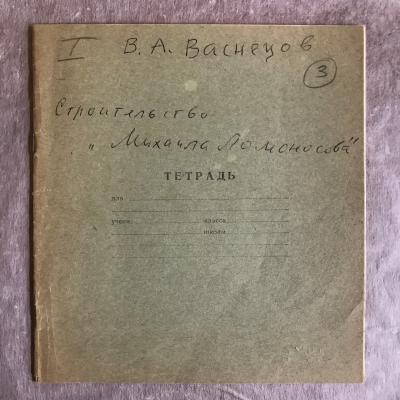 I В. А. Васнецов
3
Строительство
„Михаила Ломоносова"
ТЕТРАДЬ
для
учени класса
школы